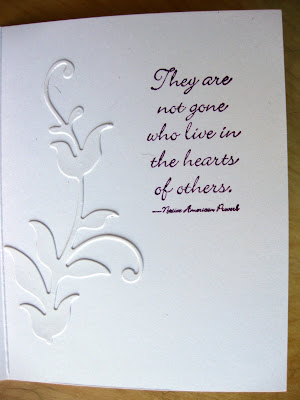 They are
not gone
who live in
the hearts
of others.
—Native American Proverb